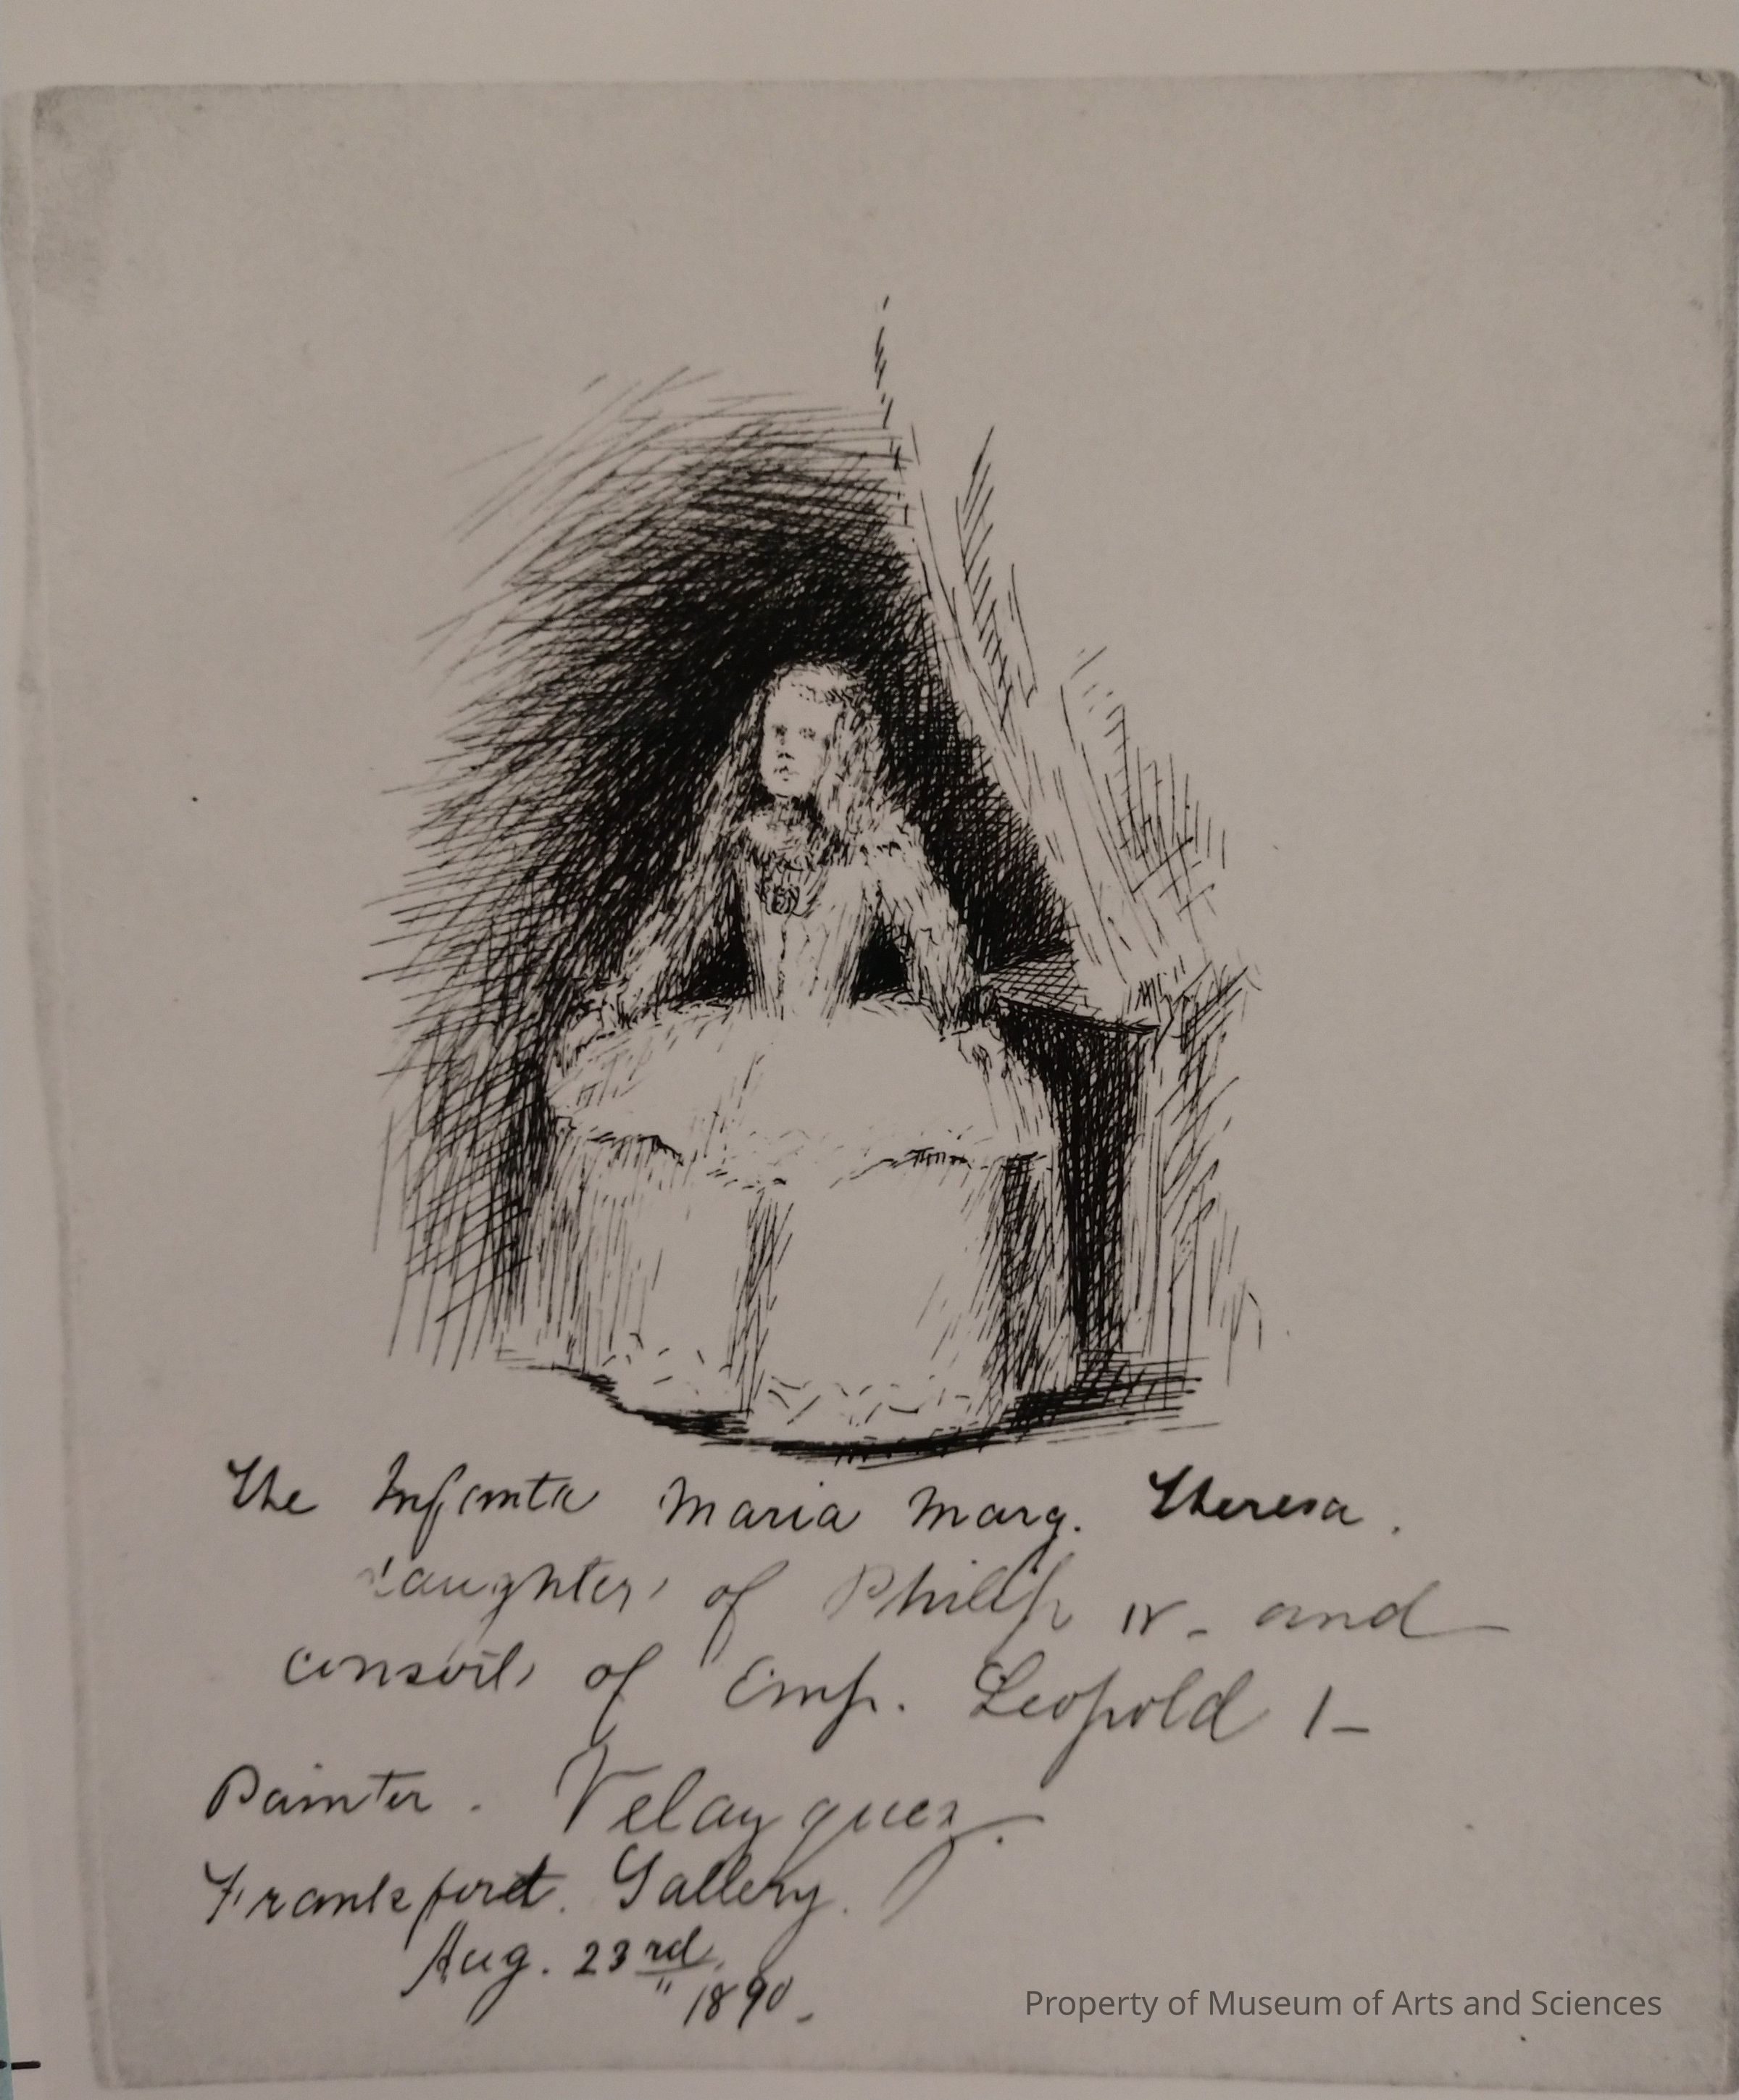 The Infanta Maria Marg. Theresa.
daughter of Philip IV - and
consort of Emp. Leopold 1 -
Painter. Velazquez.
Frankfort. Gallery.
Aug. 23rd
1890 -
Property of Museum of Arts and Sciences